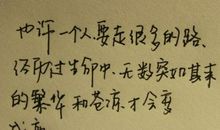 也许一个人，要走很多的路，
经历过生命中无数突如其来
的繁华和苍凉才会变
成熟